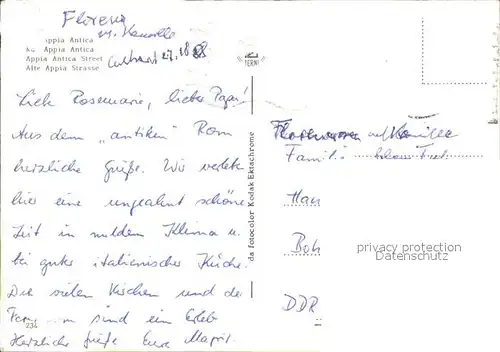 Florenz
Via Appia Antica
Rue Appia Antica
Appia Antica Street
Alte Appia Strasse
TERNI
Liebe Rosemarie, lieber Papa!
Aus dem "antiken" Rom
herzliche Grüße. Wir verleben
hier eine ungeahnt schöne
Zeit in mildem Klima u.
bei guter italienischer Küche.
Die vielen Kirchen und die
sind ein Erleb
Herzliche Grüße Eure
234
da fotocolor Kodak Ektachrome
Familie
Hau
Boh
DDR
privacy protection
Datenschutz